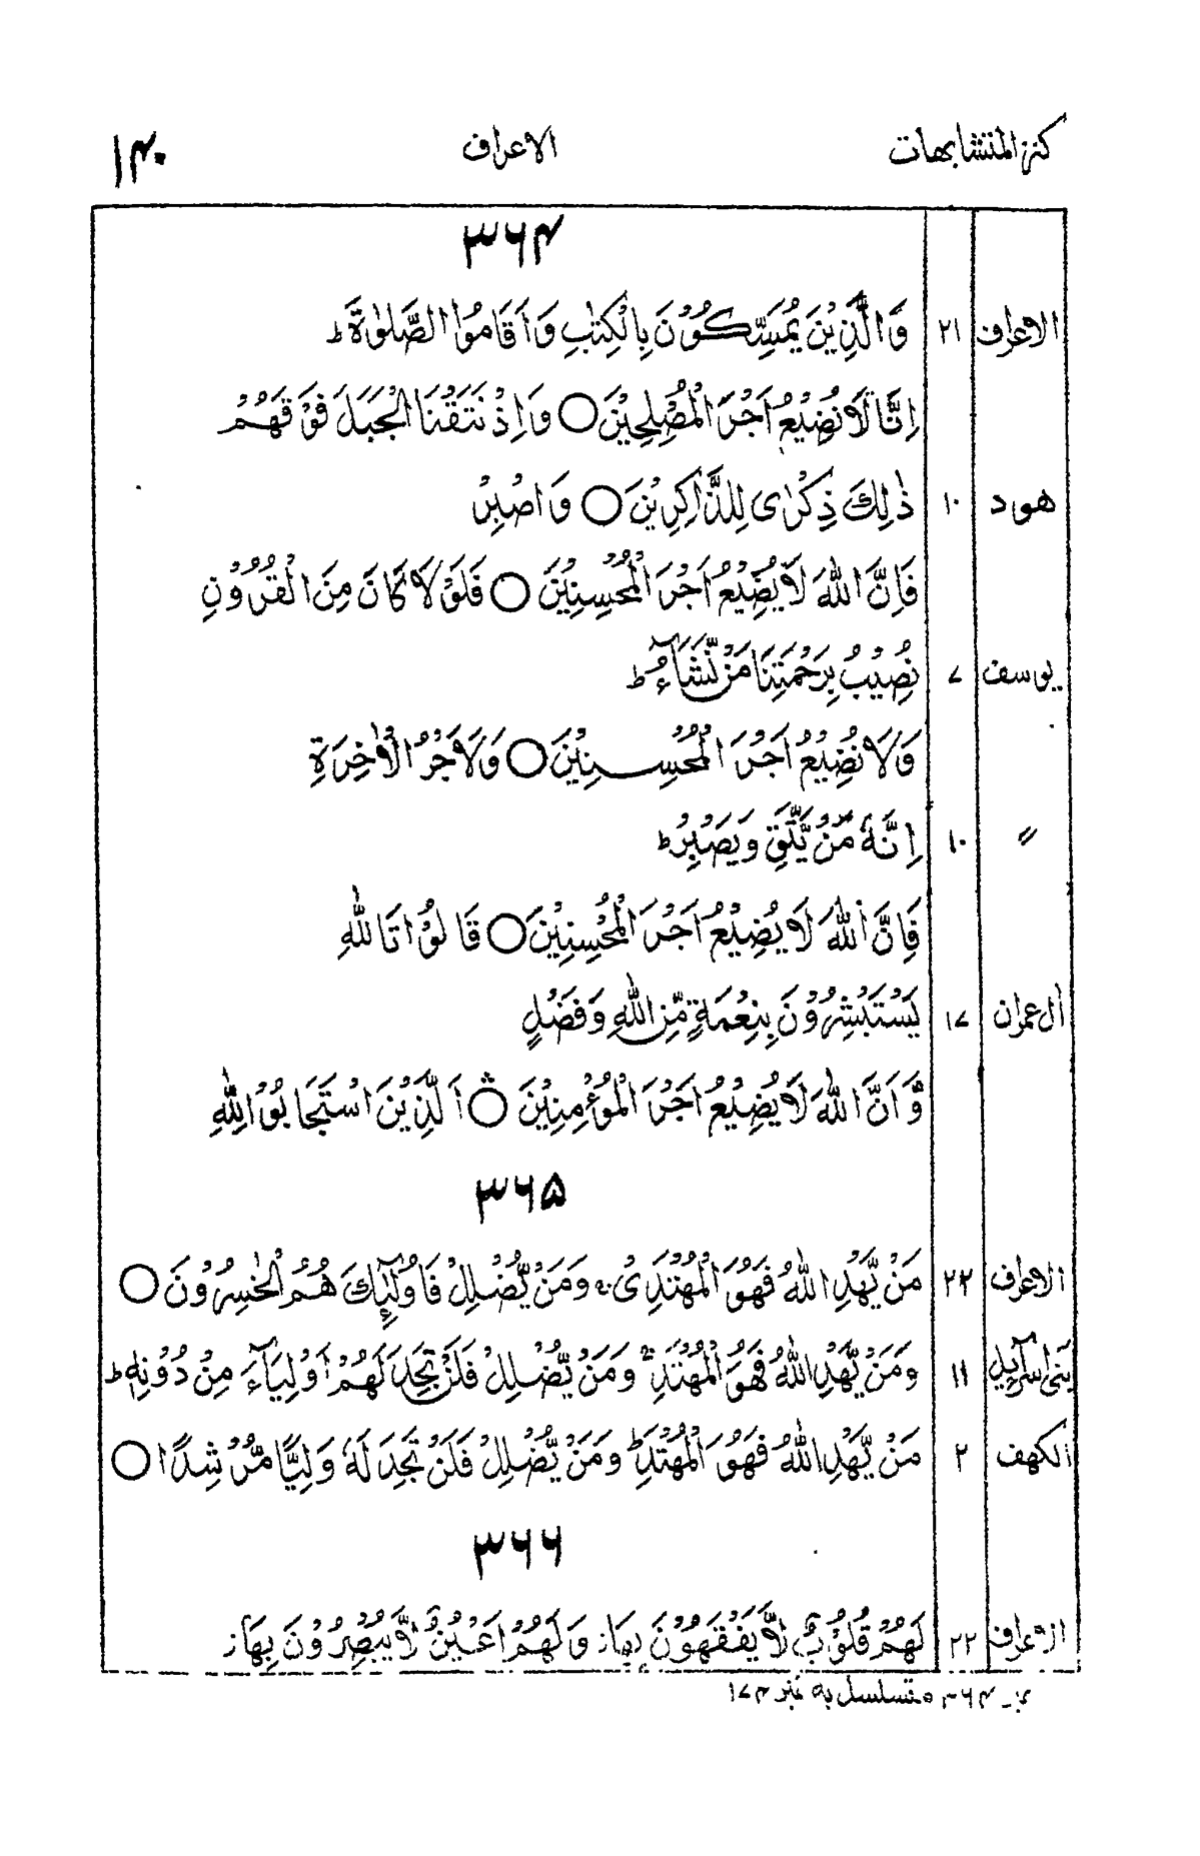 كنز المتشابهات الاعراف ۱۴۰
۳۶۴
الاعراف ۲۱ وَالَّذِیْنَ یُمَسِّكُوْنَ بِالْكِتٰبِ وَاَقَامُوا الصَّلٰوةَ ؕ
اِنَّا لَا نُضِیْعُ اَجْرَ الْمُصْلِحِیْنَ ○ وَاِذْ نَتَقْنَا الْجَبَلَ فَوْقَهُمْ
هود ۱۰ ذٰلِكَ ذِكْرٰی لِلذّٰكِرِیْنَ ○ وَاصْبِرْ
فَاِنَّ اللّٰهَ لَا یُضِیْعُ اَجْرَ الْمُحْسِنِیْنَ ○ فَلَوْ لَا كَانَ مِنَ الْقُرُوْنِ
یوسف ۷ نُصِیْبُ بِرَحْمَتِنَا مَنْ نَّشَآءُ ؕ
وَلَا نُضِیْعُ اَجْرَ الْمُحْسِنِیْنَ ○ وَلَاَجْرُ الْاٰخِرَةِ
〃 ۱۰ اِنَّهٗ مَنْ یَّتَّقِ وَیَصْبِرْ ؕ
فَاِنَّ اللّٰهَ لَا یُضِیْعُ اَجْرَ الْمُحْسِنِیْنَ ○ قَالُوْا تَاللّٰهِ
اٰل عمران ۱۷ یَسْتَبْشِرُوْنَ بِنِعْمَةٍ مِّنَ اللّٰهِ وَفَضْلٍ
وَّاَنَّ اللّٰهَ لَا یُضِیْعُ اَجْرَ الْمُؤْمِنِیْنَ ○ اَلَّذِیْنَ اسْتَجَابُوْا لِلّٰهِ
۳۶۵
الاعراف ۲۲ مَنْ یَّهْدِ اللّٰهُ فَهُوَ الْمُهْتَدِیْ ۚ وَمَنْ یُّضْلِلْ فَاُولٰٓئِكَ هُمُ الْخٰسِرُوْنَ ○
بنی اسرآءیل ۱۱ وَمَنْ یَّهْدِ اللّٰهُ فَهُوَ الْمُهْتَدِ ۚ وَمَنْ یُّضْلِلْ فَلَنْ تَجِدَ لَهُمْ اَوْلِیَآءَ مِنْ دُوْنِهٖ ؕ
الكهف ۲ مَنْ یَّهْدِ اللّٰهُ فَهُوَ الْمُهْتَدِ ؕ وَمَنْ یُّضْلِلْ فَلَنْ تَجِدَ لَهٗ وَلِیًّا مُّرْشِدًا ○
۳۶۶
الاعراف ۲۲ لَهُمْ قُلُوْبٌ لَّا یَفْقَهُوْنَ بِهَا ز وَلَهُمْ اَعْیُنٌ لَّا یُبْصِرُوْنَ بِهَا ز
۳۶۴ متسلسل به نمبر ۱۷۳